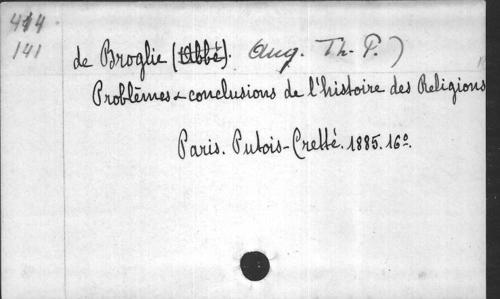 414
141
de Broglie (Abbé). Aug. Th. P.)
Problèmes & conclusions de l'histoire des Religions
Paris. Putois-Cretté. 1885. 16º.